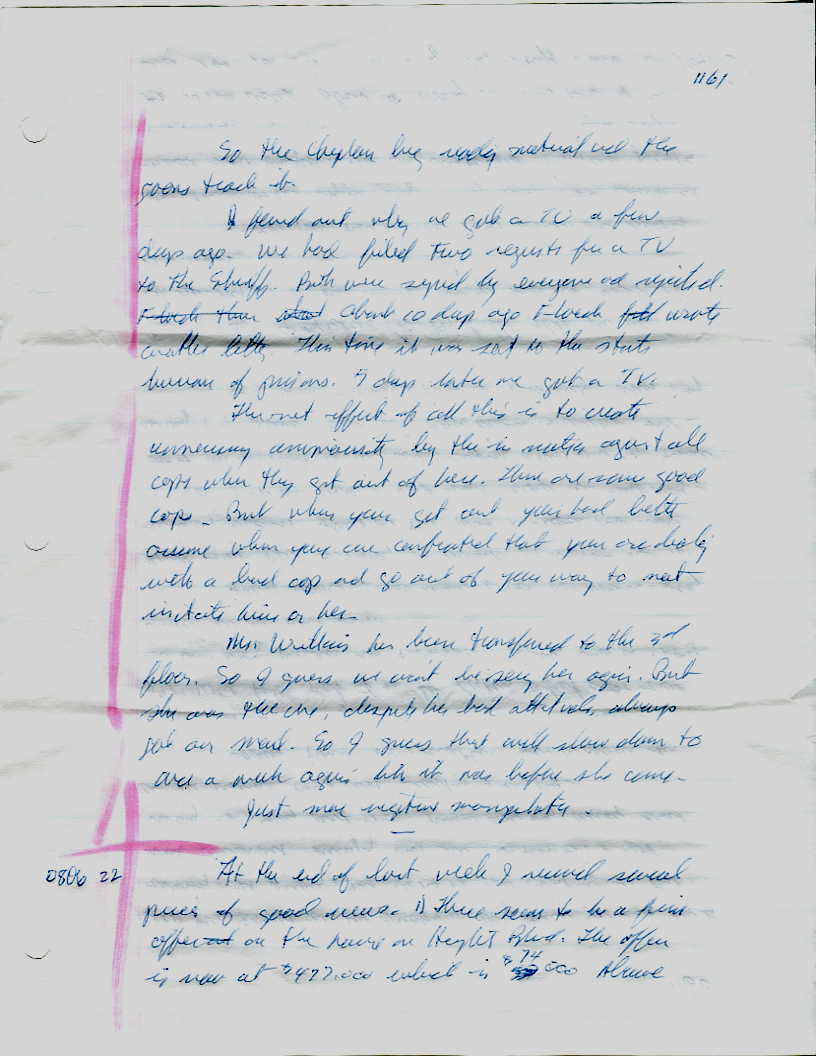 1161
So the Chaplan buy reading material and the
goons trash it.
I found out why we got a TV a few
days ago. We had filed two requests for a TV
to the Sheriff. Both were signed by everyone and rejected.
About 10 days ago wrote
another letter. This time it was sent to the state
bureau of prisons. 5 days later we got a TV.
The net effect of all this is to create
unnecessary animosity by the inmates against all
cops when they get out of here. There are some good
cops. But when your get out your had better
assume when your are confronted that your are dealing
with a bad cop and go out of your way to not
irritate him or her.
Mrs Watkins has been transferred to the 3rd
floor. So I guess we won't be seeing her again. But
she was the one, despite her bad attitude, always
got our mail. So I guess that will slow down to
once a week again like it was before she came.
Just more negative manipulation.
0806 22 At the end of last week I received several
pieces of good news. 1) There seems to be a firm
offer on the house on Height Blvd. The offer
is now at $422,000 which is $74,000 Above